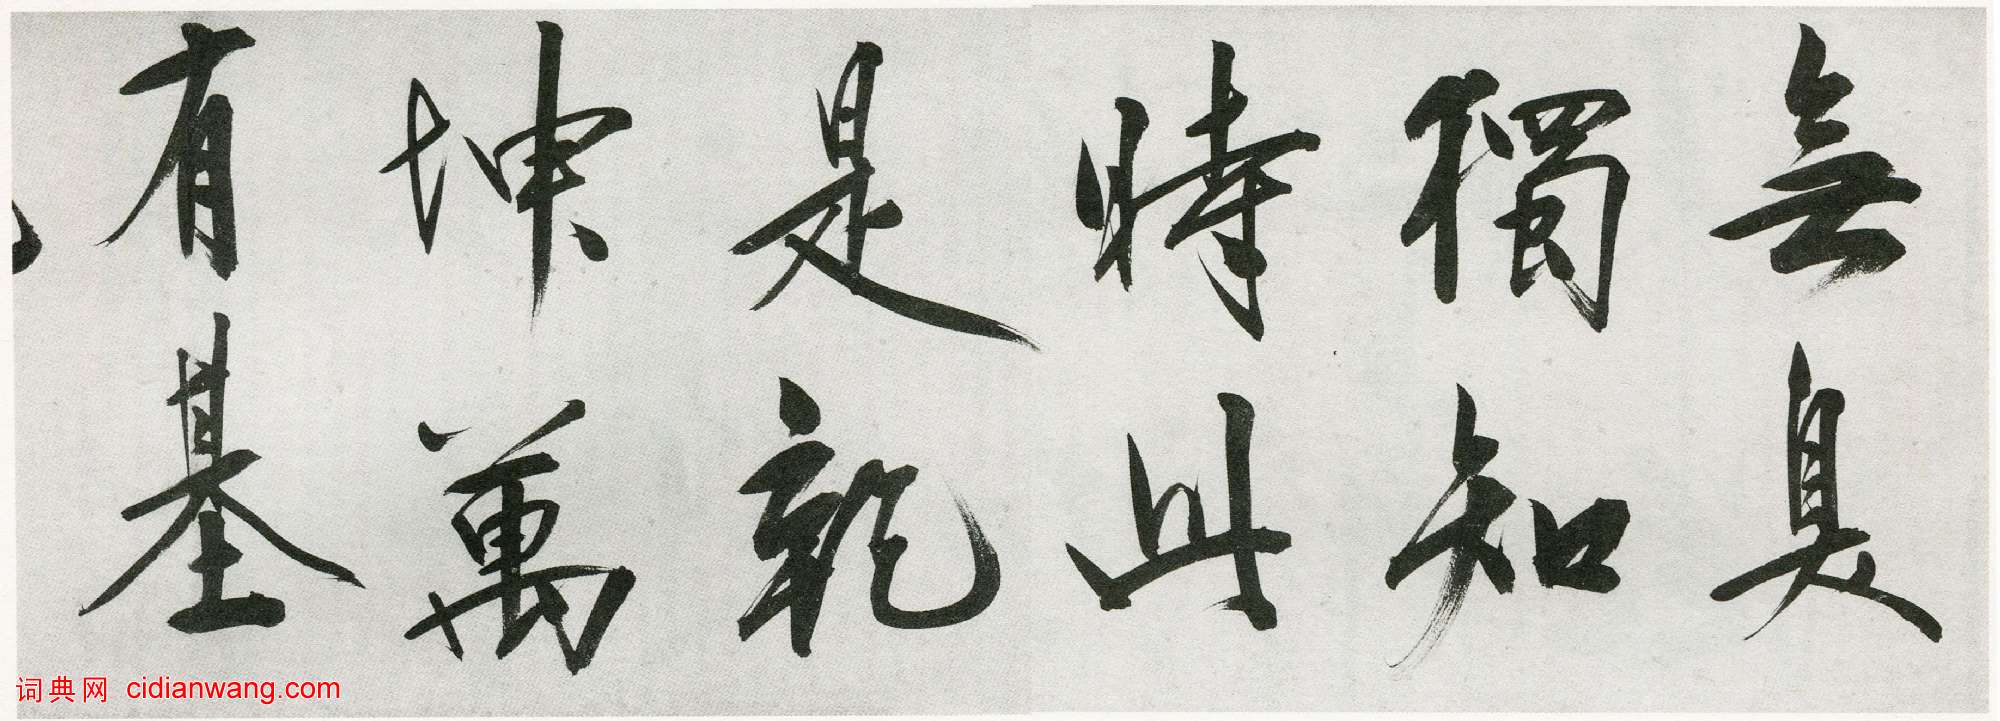 無臭
獨知
時此
是乾
坤萬
有基
词典网 cidianwang.com